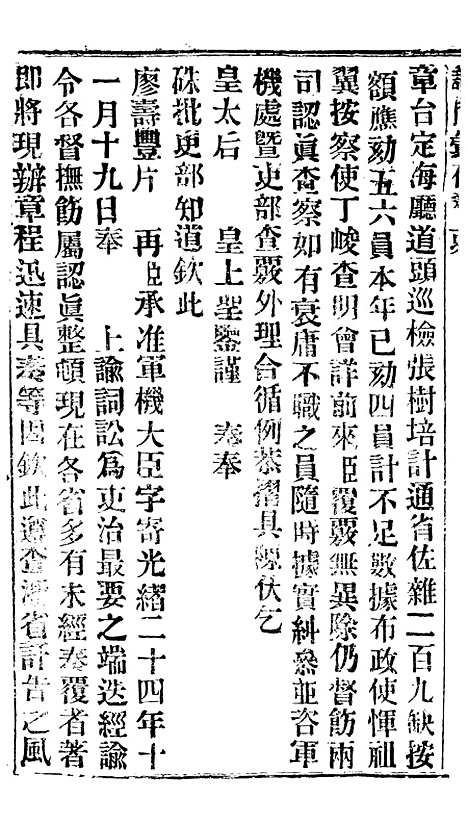 章台定海廳道頭巡檢張樹培計通省佐雜二百九缺按
額應劾五六員本年已劾四員計不足數據布政使惲祖
翼按察使丁峻查明會詳前來臣覆覈無異除仍督飭兩
司認眞查察如有衰庸不職之員隨時據實糾叅並咨軍
機處暨吏部查覈外理合循例恭摺具陳伏乞
皇太后　皇上聖鑒謹　奏奉
硃批吏部知道欽此
廖壽豐片　再臣承准軍機大臣字寄光緒二十四年十
一月十九日奉　上諭詞訟爲吏治最要之端迭經諭
令各督撫飭屬認眞整頓現在各省多有未經奏覆者著
即將現辦章程迅速具奏等因欽此遵查浙省訐告之風